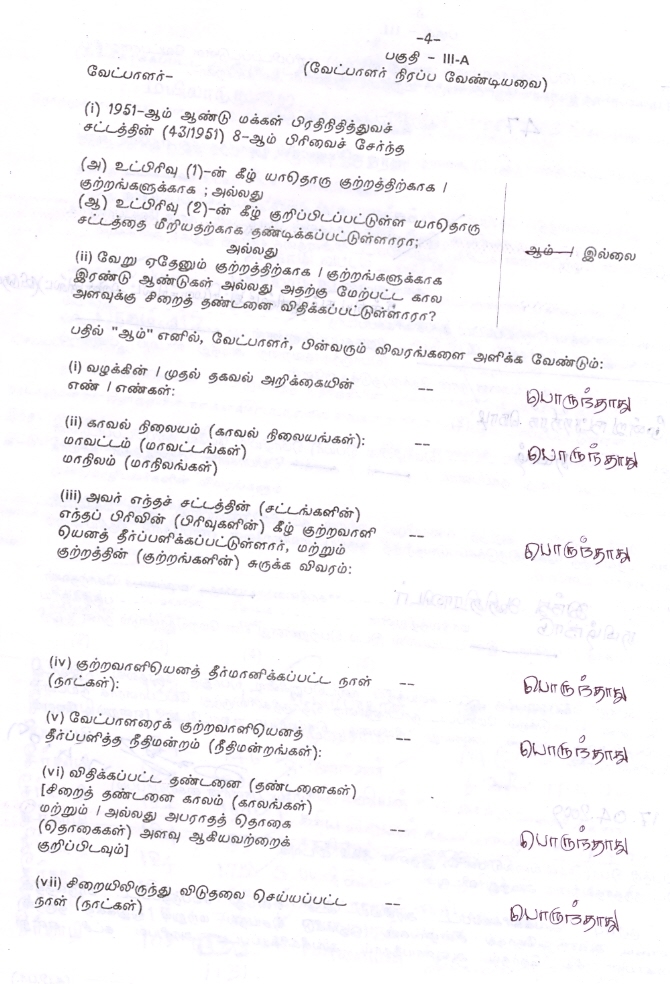 -4-
பகுதி - III-A
வேட்பாளர்- (வேட்பாளர் நிரப்ப வேண்டியவை)
(i) 1951-ஆம் ஆண்டு மக்கள் பிரதிநிதித்துவச்
சட்டத்தின் (43/1951) 8-ஆம் பிரிவைச் சேர்ந்த
(அ) உட்பிரிவு (1)-ன் கீழ் யாதொரு குற்றத்திற்காக /
குற்றங்களுக்காக ; அல்லது
(ஆ) உட்பிரிவு (2)-ன் கீழ் குறிப்பிடப்பட்டுள்ள யாதொரு
சட்டத்தை மீறியதற்காக தண்டிக்கப்பட்டுள்ளாரா;
அல்லது
ஆம் / இல்லை
(ii) வேறு ஏதேனும் குற்றத்திற்காக / குற்றங்களுக்காக
இரண்டு ஆண்டுகள் அல்லது அதற்கு மேற்பட்ட கால
அளவுக்கு சிறைத் தண்டனை விதிக்கப்பட்டுள்ளாரா?
பதில் "ஆம்" எனில், வேட்பாளர், பின்வரும் விவரங்களை அளிக்க வேண்டும்:
(i) வழக்கின் / முதல் தகவல் அறிக்கையின்
எண் / எண்கள்: -- பொருந்தாது
(ii) காவல் நிலையம் (காவல் நிலையங்கள்): --
மாவட்டம் (மாவட்டங்கள்) பொருந்தாது
மாநிலம் (மாநிலங்கள்)
(iii) அவர் எந்தச் சட்டத்தின் (சட்டங்களின்)
எந்தப் பிரிவின் (பிரிவுகளின்) கீழ் குற்றவாளி --
யெனத் தீர்ப்பளிக்கப்பட்டுள்ளார், மற்றும் பொருந்தாது
குற்றத்தின் (குற்றங்களின்) சுருக்க விவரம்:
(iv) குற்றவாளியெனத் தீர்மானிக்கப்பட்ட நாள் --
(நாட்கள்): பொருந்தாது
(v) வேட்பாளரைக் குற்றவாளியெனத்
தீர்ப்பளித்த நீதிமன்றம் (நீதிமன்றங்கள்): -- பொருந்தாது
(vi) விதிக்கப்பட்ட தண்டனை (தண்டனைகள்)
[சிறைத் தண்டனை காலம் (காலங்கள்)
மற்றும் / அல்லது அபராதத் தொகை
(தொகைகள்) அளவு ஆகியவற்றைக் -- பொருந்தாது
குறிப்பிடவும்]
(vii) சிறையிலிருந்து விடுதலை செய்யப்பட்ட --
நாள் (நாட்கள்) பொருந்தாது